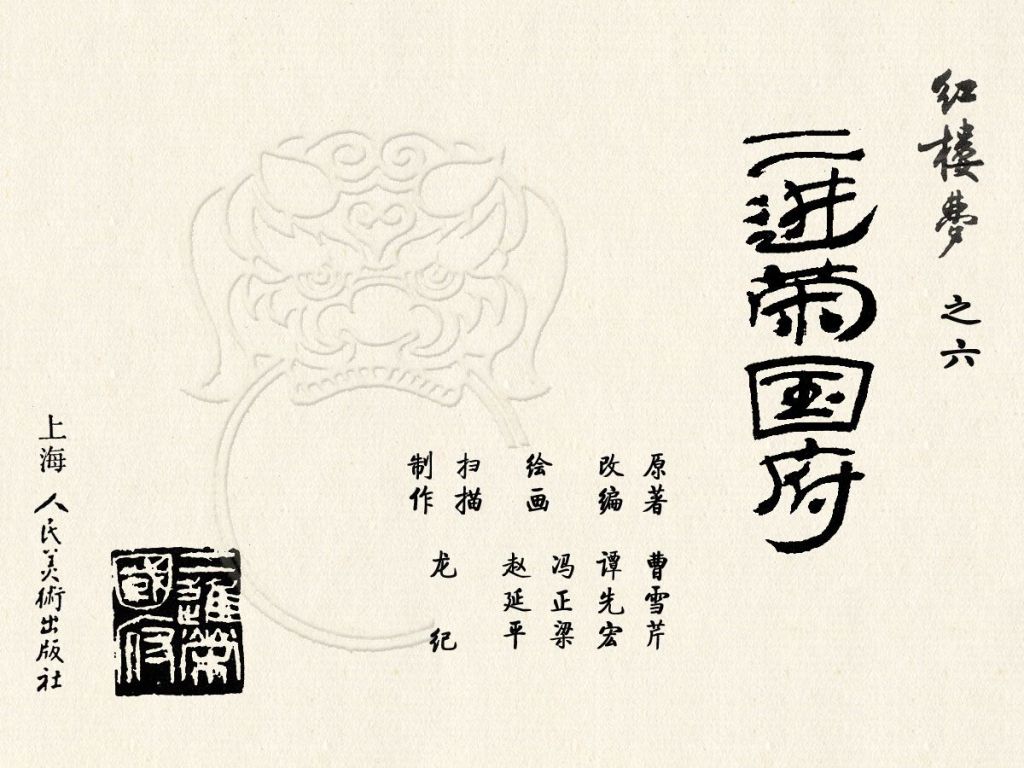 红楼梦 之六
二进荣国府
原著 曹雪芹
改编 谭先宏
绘画 冯正梁
赵延平
扫描
制作 龙纪
二进荣国府
上海人民美術出版社